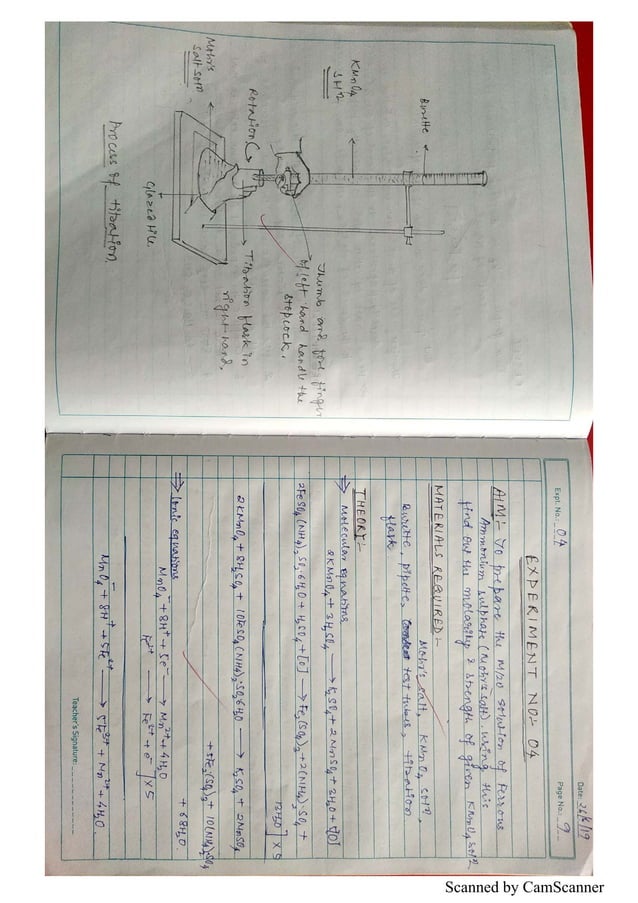 Burette
KMnO4
soln
Rotation
Mohr's
salt soln
Thumb and fore finger
of left hand handle the
stopcock.
Titration flask in
right hand.
Glazed tile.
Process of titration
Date: 26/6/19
Expt. No.: 04
Page No.: 9
EXPERIMENT NO:- 04
AIM:- To prepare the M/20 solution of Ferrous
Ammonium sulphate (Mohr's salt). using this
find out the molarity & strength of given KMnO4 soln.
MATERIALS REQUIRED:-
Mohr's salt, KMnO4 soln,
Burette, pipette, test tubes, titration
flask
THEORY:-
⇒ Molecular equations
2KMnO4 + 3H2SO4 → K2SO4 + 2MnSO4 + 3H2O + 5[O]
2FeSO4(NH4)2SO4·6H2O + H2SO4 + [O] → Fe2(SO4)3 + 2(NH4)2SO4 +
13H2O ] × 5
2KMnO4 + 8H2SO4 + 10FeSO4(NH4)2SO4·6H2O → K2SO4 + 2MnSO4
+ 5Fe2(SO4)3 + 10(NH4)2SO4
+ 68H2O.
⇒ Ionic equations
MnO4⁻ + 8H⁺ + 5e⁻ → Mn²⁺ + 4H2O
Fe²⁺ → Fe³⁺ + e⁻ ] × 5
MnO4⁻ + 8H⁺ + 5Fe²⁺ → 5Fe³⁺ + Mn²⁺ + 4H2O.
Teacher's Signature:
Scanned by CamScanner